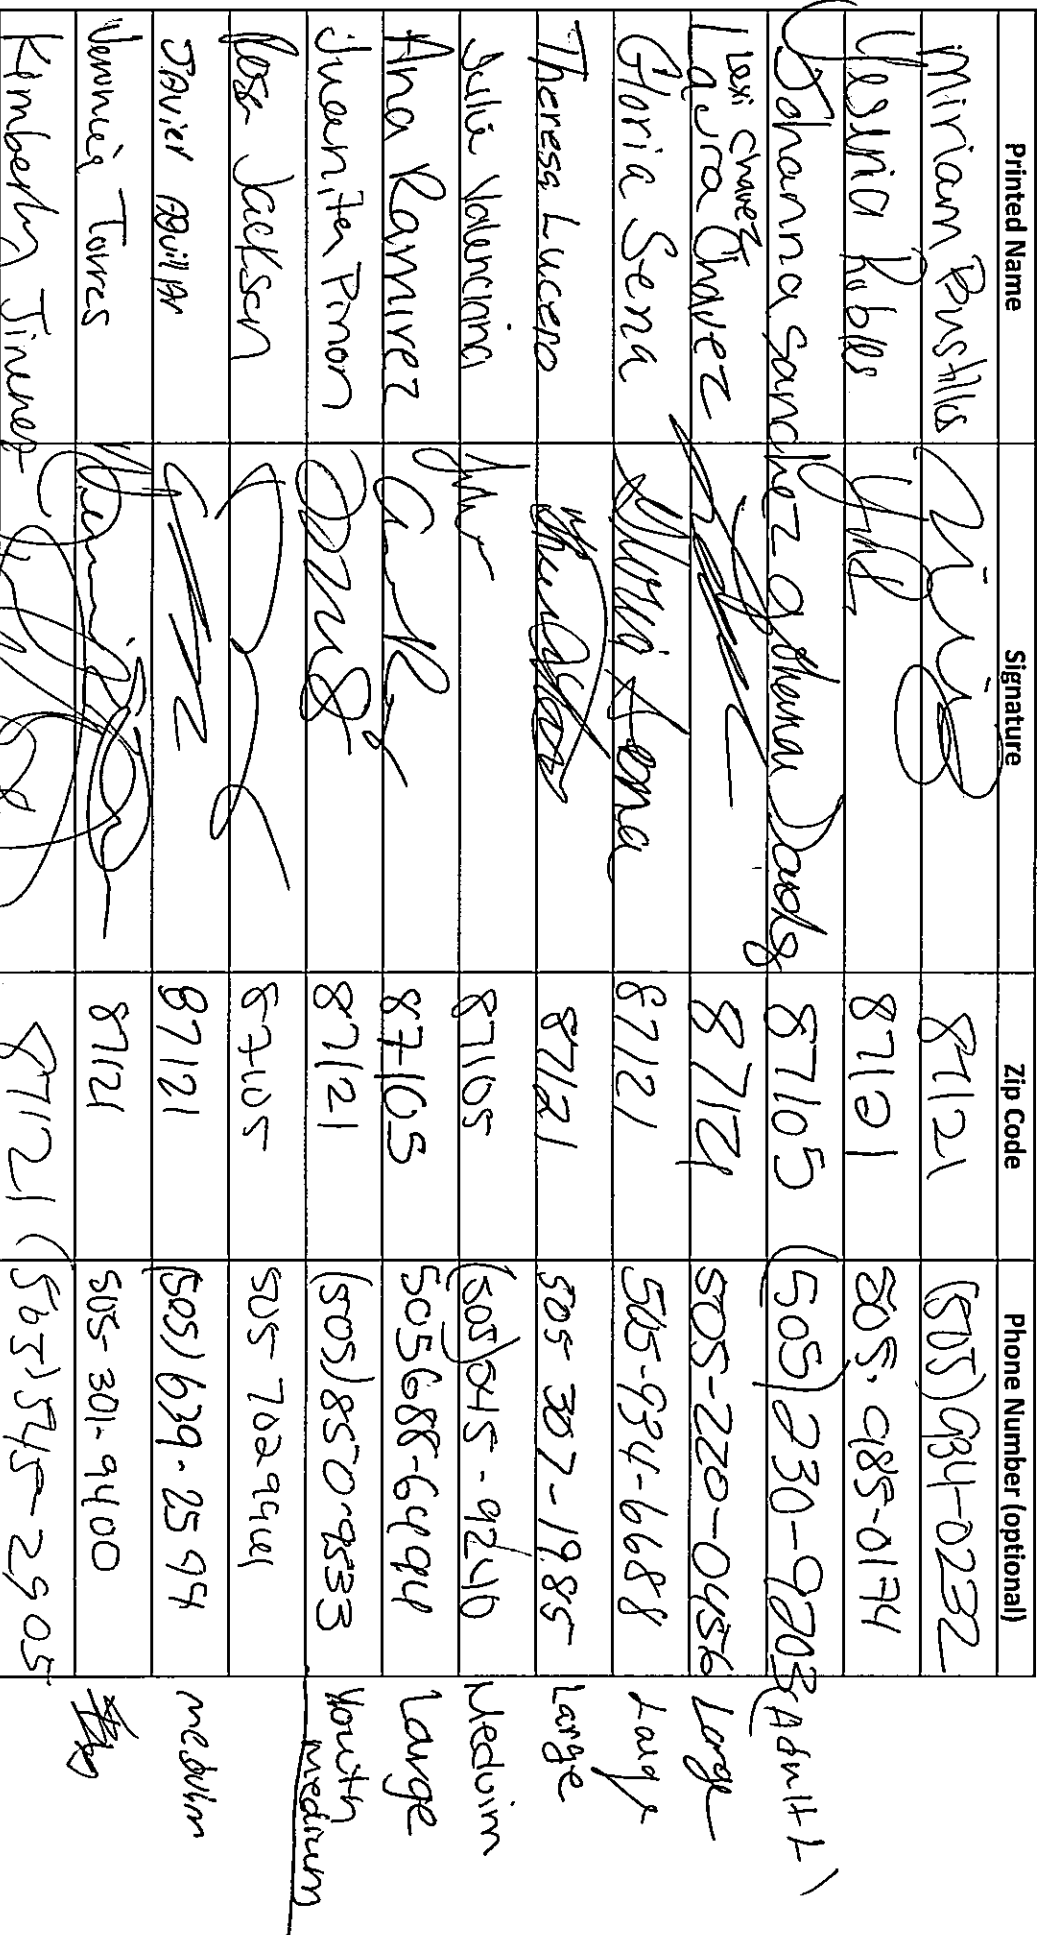 Printed Name Signature Zip Code Phone Number (optional)
Miriam Bustillos 87121 (505) 934-0232
Yesenia Robles 87121 505.985-0174
Johanna Sanchez 87105 (505) 230-9203 (Adult L)
Lexi Chavez
Laura Chavez 87121 505-220-0456 Large
Gloria Sena Gloria Sena 87121 505-934-6688 Large
Theresa Lucero 87121 505-307-1985 Large
Julie Valenciana 87105 (505) Meduim
Ana Ramirez 87105 505 688-6494 Large
Juanita Pinon 87121 (505) 850-9533 Youth medium
Rose Jackson 87105
Javier Aguilar 87121 (505) 639-2594 medium
Torres 87121 505-301-9400
Kimberly Jimenez 87121 (505) 545-2905